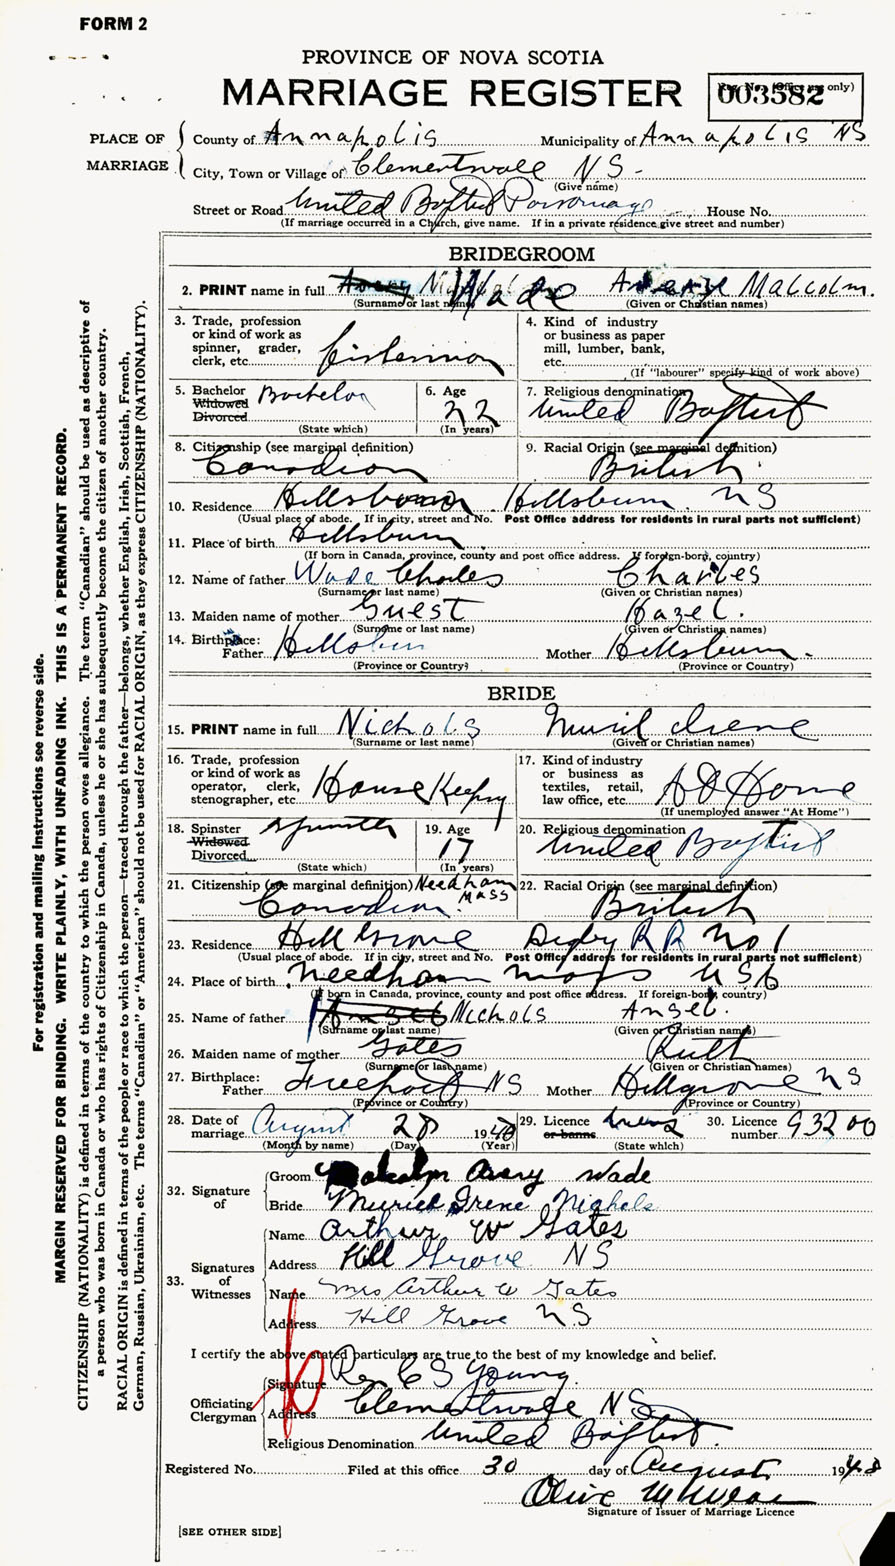 FORM 2
PROVINCE OF NOVA SCOTIA
MARRIAGE REGISTER
Reg. No. (Office use only)
003582
PLACE OF MARRIAGE
County of Annapolis Municipality of Annapolis NS
City, Town or Village of Clementsvale NS
(Give name)
Street or Road United Baptist Parsonage House No.
(If marriage occurred in a Church, give name. If in a private residence give street and number)
BRIDEGROOM
2. PRINT name in full Wade Avery Malcolm.
(Surname or last name) (Given or Christian names)
3. Trade, profession or kind of work as spinner, grader, clerk, etc. Fisherman
4. Kind of industry or business as paper mill, lumber, bank, etc.
(If "labourer" specify kind of work above)
5. Bachelor Widowed Divorced Bachelor
(State which)
6. Age 22
(In years)
7. Religious denomination United Baptist
8. Citizenship (see marginal definition) Canadian
9. Racial Origin (see marginal definition) British
10. Residence Hillsburn NS
(Usual place of abode. If in city, street and No. Post Office address for residents in rural parts not sufficient)
11. Place of birth Hillsburn
(If born in Canada, province, county and post office address. If foreign-born, country)
12. Name of father Wade Charles Charles
(Surname or last name) (Given or Christian names)
13. Maiden name of mother Guest Hazel.
(Surname or last name) (Given or Christian names)
14. Birthplace: Father Hillsburn Mother Hillsburn.
(Province or Country) (Province or Country)
BRIDE
15. PRINT name in full Nichols Muriel Irene
(Surname or last name) (Given or Christian names)
16. Trade, profession or kind of work as operator, clerk, stenographer, etc. House Keeping
17. Kind of industry or business as textiles, retail, law office, etc. At Home
(If unemployed answer "At Home")
18. Spinster Widowed Divorced Spinster
(State which)
19. Age 17
(In years)
20. Religious denomination United Baptist
21. Citizenship (see marginal definition) Needham Mass Canadian
22. Racial Origin (see marginal definition) British
23. Residence Hill Grove Digby RR No 1
(Usual place of abode. If in city, street and No. Post Office address for residents in rural parts not sufficient)
24. Place of birth Needham Mass USA
(If born in Canada, province, county and post office address. If foreign-born, country)
25. Name of father Ansel Nichols Ansel.
(Surname or last name) (Given or Christian names)
26. Maiden name of mother Gates Ruth
(Surname or last name) (Given or Christian names)
27. Birthplace: Father Freeport NS Mother Hillgrove NS
(Province or Country) (Province or Country)
28. Date of marriage August 28 1948
(Month by name) (Day) (Year)
29. Licence or banns
(State which)
30. Licence number 93200
32. Signature of
Groom Malcolm Avery Wade
Bride Muriel Irene Nichols
33. Signatures of Witnesses
Name Arthur W Gates
Address Hill Grove NS
Name Mrs Arthur W Gates
Address Hill Grove NS
I certify the above stated particulars are true to the best of my knowledge and belief.
Officiating Clergyman
Signature Rev C S Young.
Address Clementsvale NS
Religious Denomination United Baptist.
Registered No. Filed at this office 30 day of August 1948
Olive
Signature of Issuer of Marriage Licence
[SEE OTHER SIDE]
For registration and mailing instructions see reverse side.
MARGIN RESERVED FOR BINDING. WRITE PLAINLY, WITH UNFADING INK. THIS IS A PERMANENT RECORD.
CITIZENSHIP (NATIONALITY) is defined in terms of the country to which the person owes allegiance. The term "Canadian" should be used as descriptive of
a person who was born in Canada or who has rights of Citizenship in Canada, unless he or she has subsequently become the citizen of another country.
RACIAL ORIGIN is defined in terms of the people or race to which the person—traced through the father—belongs, whether English, Irish, Scottish, French,
German, Russian, Ukrainian, etc. The terms "Canadian" or "American" should not be used for RACIAL ORIGIN, as they express CITIZENSHIP (NATIONALITY).